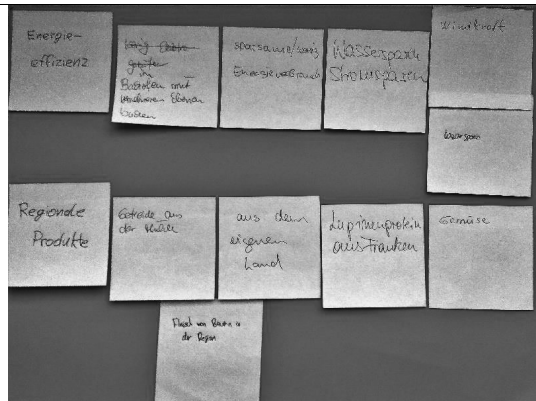 Energie-
effizienz
in
Backofen mit
mehreren Ebenen
backen
sparsame/wenig
Energieverbrauch
Wassersparen
Stromsparen
Windkraft
Wassersparen
Regionale
Produkte
Getreide aus
der Mühle
aus dem
eigenen
Land
Lupinenprotein
aus Franken
Gemüse
Fleisch von Bauern in
der Region